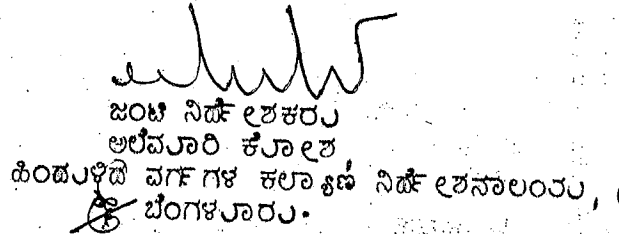 ಜಂಟಿ ನಿರ್ದೇಶಕರು
ಅಲೆಮಾರಿ ಕೋಶ
ಹಿಂದುಳಿದ ವರ್ಗಗಳ ಕಲ್ಯಾಣ ನಿರ್ದೇಶನಾಲಯ,
ಬೆಂಗಳೂರು.